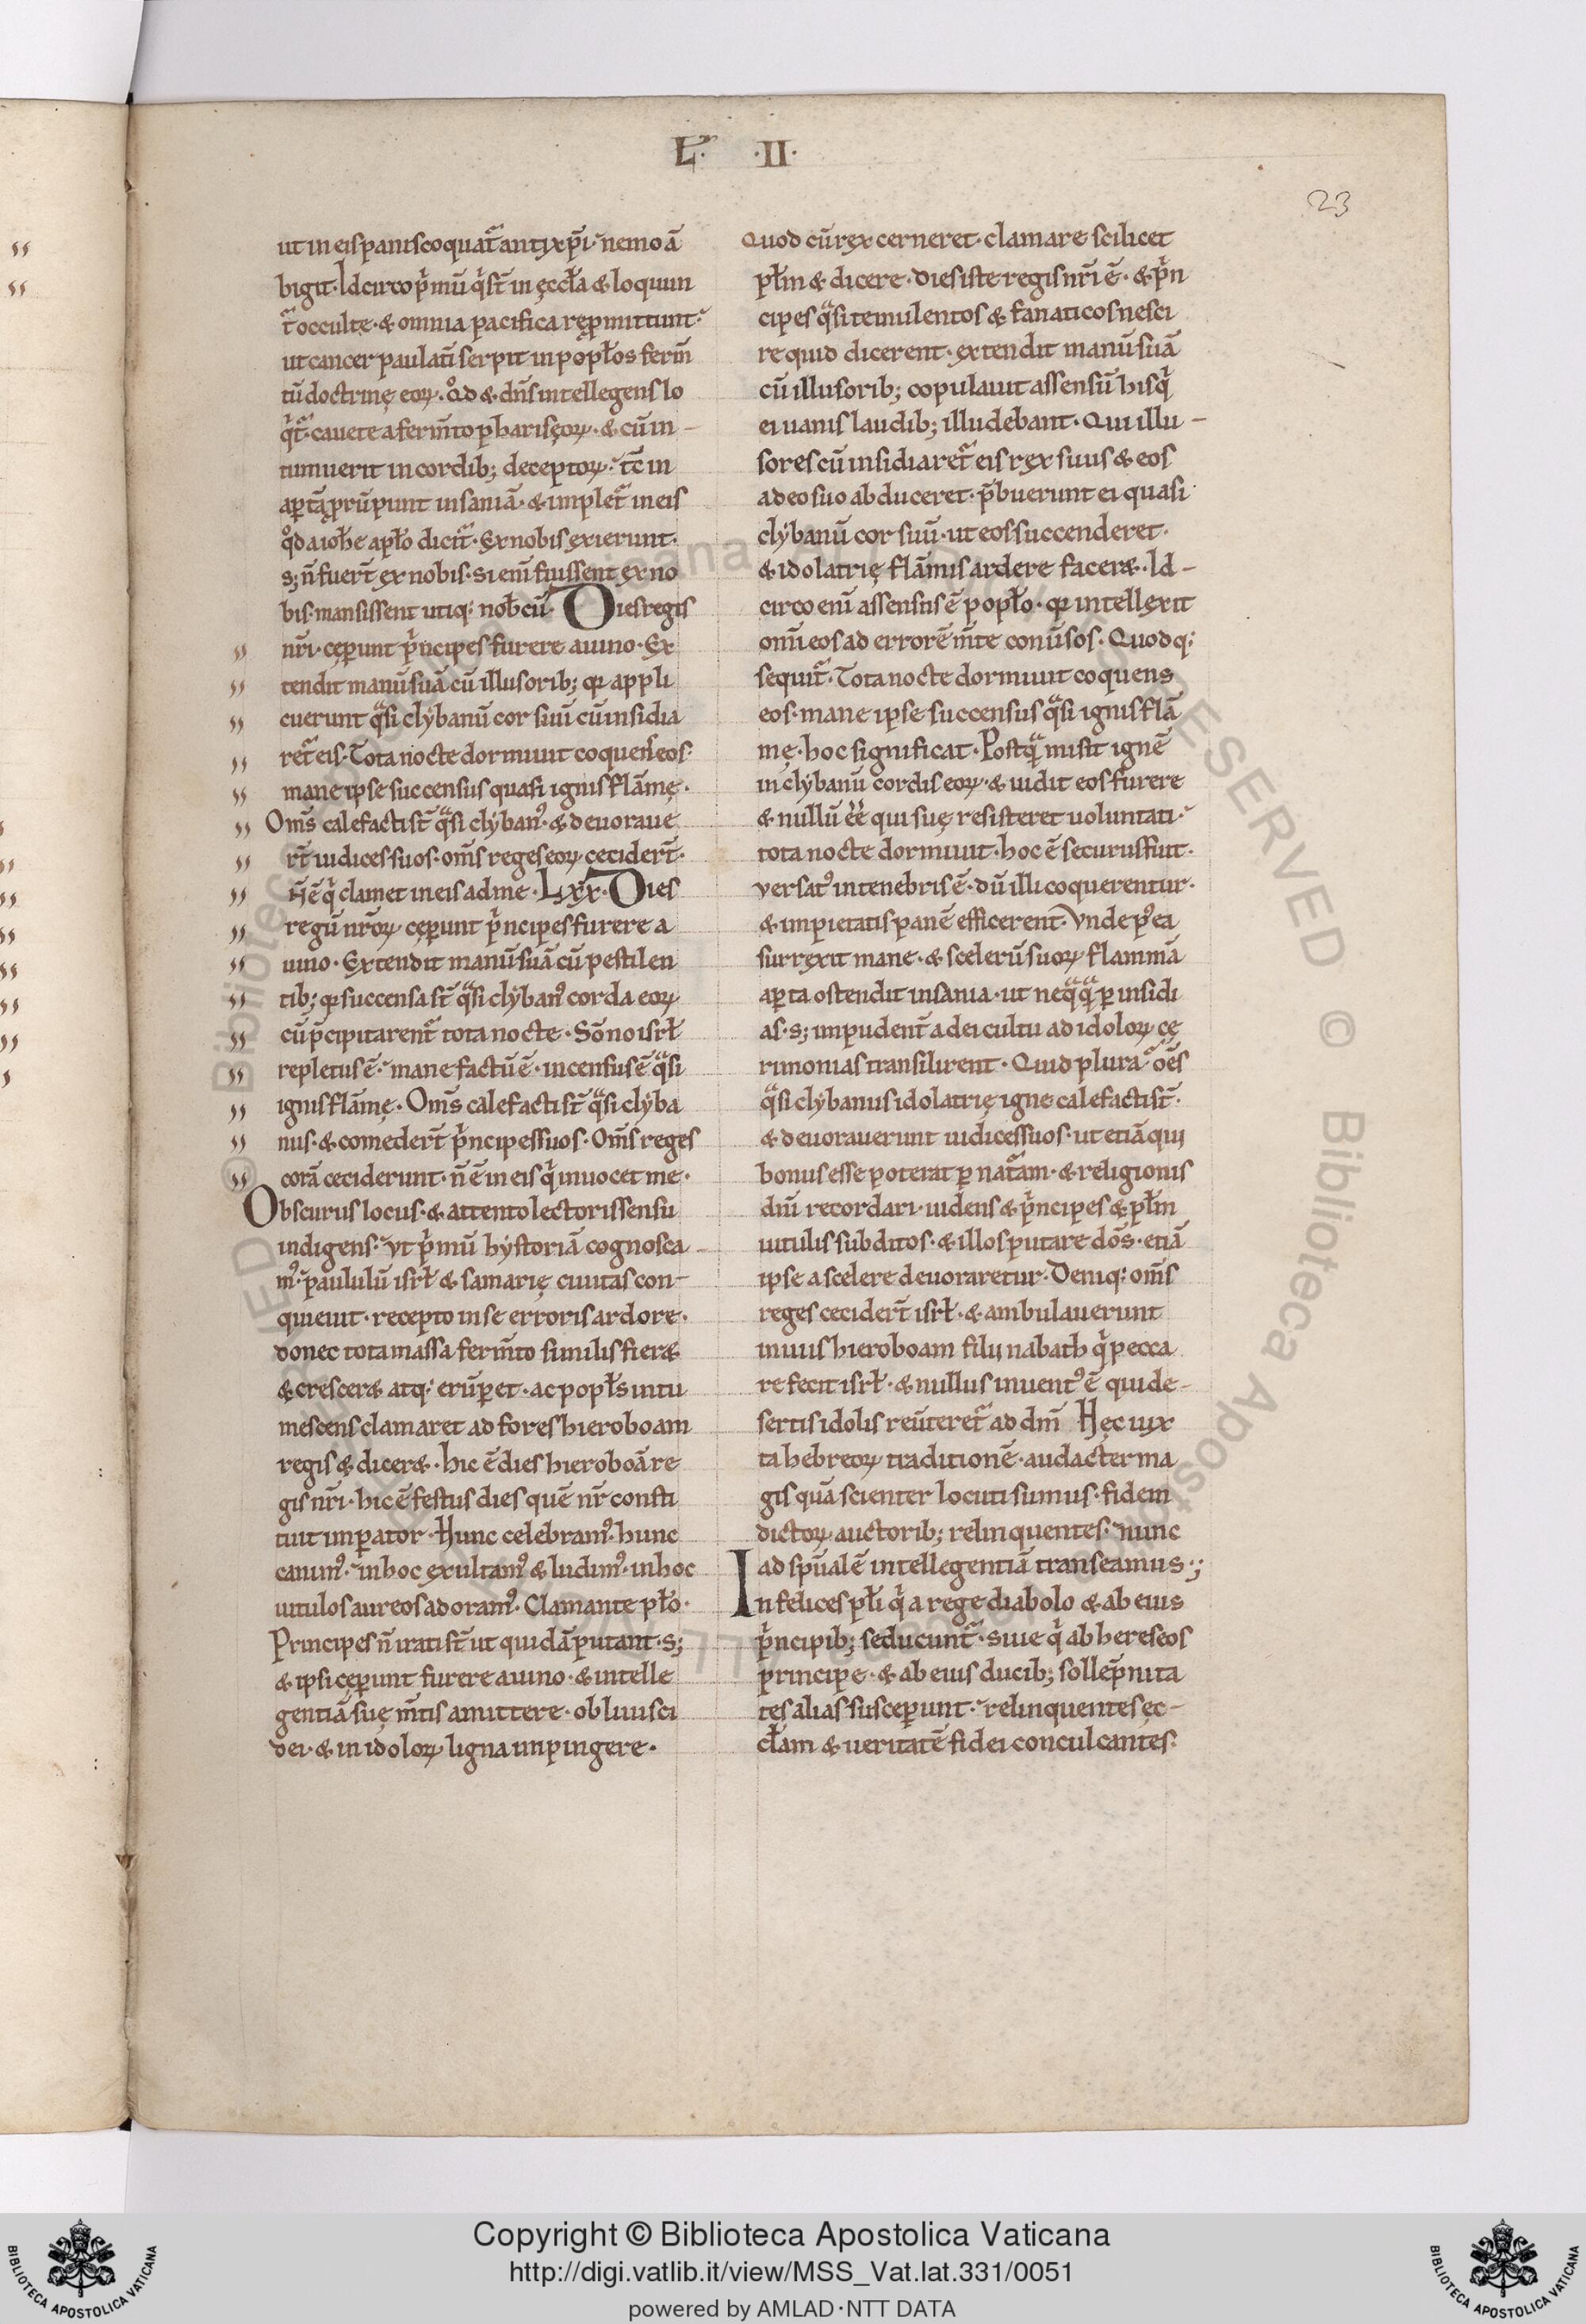 L. ·II·
23
ut in eis panis coquat᷑ antixp̄i· nemo ā
bigit· Idcirco pͥmū qͥ st̄ in ęccła & loquun
t᷑ occultę· & omnia pacifica rep̱mittunt·
ut cancer paulatī serpit in popłos ferm̄
tū doctrinę eoꝝ. Qͦd & dn̄s intellegens lo
qͥt᷑· cauete a ferm̄to pharisęoꝝ· & cū in-
tumuerit in cordib; deceptoꝝ· tc̄ in
ap̱tā prūpunt insaniā· & implet᷑ in eis
qͦd a ioħe apło dicit᷑· Ex nobis exierunt·
s; n̄ fuer̄t ex nobis· si enī fuissent ex no
bis· mansissent utiq; nob̄cū· Dies regis
nr̄i· cęperunt pͥncipes furere a uino· Ex
tendit manū suā cū illusorib; qꝫ appli
cuerunt qᷓsi clybanū cor suū cū insidia
ret᷑ eis· Tota nocte dormiuit coquens eos·
mane ipse succensus quasi ignis flāmę·
Om̄s calefacti st̄ qᷓsi clyban⁹· & deuoraue
rt̄ iudices suos· om̄s reges eoꝝ cecider̄t·
N̄ ē qͥ clamet in eis ad me· LXX· Dies
regū nr̄oꝝ cęperunt pͥncipes furere a
uino· Extendit manū suā cū pestilen
tib; qꝫ succensa st̄ qᷓsi clyban⁹ corda eoꝝ
cū p̄cipitarent᷑ tota nocte· Sōno isrł
repletus ē· mane factū ē· incensus ē qᷓsi
ignis flāmę· Om̄s calefacti st̄ qᷓsi clyba
nus· & comeder̄t pͥncipes suos· Om̄s reges
corā ceciderunt· n̄ ē in eis qͥ inuocet me·
Obscurus locus· & attento lectoris sensu
indigens· ut pͥmū hystoriā cognosca-
m⁹· paululū isrł & samarię ciuitas con-
quieuit· recepto in se erroris ardore·
donec tota massa ferm̄to similis fier&
& crescer& atq; erūperet· ac popłs intu
mescens clamaret ad fores hieroboam
regis & dicer&· hic ē dies hieroboā re
gis nr̄i· hic ē festus dies quē nr̄ consti
tuit imperator· Hunc celebram⁹· hunc
canim⁹· in hoc exultam⁹ & ludim⁹· in hoc
uitulos aureos adoram⁹· Clamante pło·
Principes n̄ irati st̄ ut quidā putant· s;
& ipsi cęperunt furere a uino· & intelle
gentiā suę m̄tis amittere· obliuisci
dei· & in idoloꝝ ligna impingere·
Quod cū rex cerneret· clamare scilicet
płm & dicere· dies iste regis nr̄i ē· & pͥn
cipes qᷓsi temulentos & fanaticos nesci
re quid dicerent· extendit manū suā
cū illusorib; copulauit assensū his qͥ
ei uanis laudib; illudebant· Qui illu-
sores cū insidiaret᷑ eis rex suus & eos
a deo suo abduceret· p̄buerunt ei quasi
clybanū cor suū· ut eos succenderet·
& idolatrię flāmis ardere facer&· Id-
circo enī assensus ē popło· qꝫ intellexit
om̄i eos ad errorē m̄te conūsos· Quodq;
sequit᷑· Tota nocte dormiuit coquens
eos· mane ipse succensus qᷓsi ignis flā
mę· hoc significat· Postqᷓ misit ignē
in clybanū cordis eoꝝ· & uidit eos furere
& nullū ēē qui suę resisteret uoluntati·
tota nocte dormiuit· hoc ē securus fuit·
versat⁹ in tenebris ē· dū illi coquerentur·
& impietatis panē efficerent· Vnde p⁹ea
surrexit mane· & scelerū suoꝝ flammā
ap̱ta ostendit insania· ut neqᷓqᷓ p̱ insidi
as· s; impudent̄ a dei cultu ad idoloꝝ cę
rimonias transilirent· Quid plura· oēs
qᷓsi clybanus idolatrię igne calefacti st̄·
& deuorauerunt iudices suos· ut etiā qui
bonus esse poterat p̱ nat᷑am· & religionis
dn̄i recordari· uidens & pͥncipes & płm
uitulis subditos· & illos putare dōs· etiā
ipse a scelere deuoraretur· Deniq; om̄s
reges cecider̄t isrł· & ambulauerunt
in uiis hieroboam filii nabath qͥ pecca
re fecit isrł· & nullus inuent⁹ ē qui de-
sertis idolis reūteret᷑ ad dm̄ Hęc iux
ta hebreoꝝ traditionē· audacter ma
gis quā scienter locuti sumus· fidem
dictoꝝ auctorib; relinquentes· nunc
ad spūalē intellegentiā transeamus·;
Infelices płi qͥ a rege diabolo & ab eius
pͥncipib; seducunt᷑· siue qͥ ab hereseos
principe· & ab eius ducib; sollēpnita
tes alias susceperunt· relinquentes ęc-
cłam & ueritatē fidei conculcantes·
Copyright © Biblioteca Apostolica Vaticana
http://digi.vatlib.it/view/MSS_Vat.lat.331/0051
powered by AMLAD·NTT DATA
BIBLIOTECA APOSTOLICA VATICANA
BIBLIOTECA APOSTOLICA VATICANA